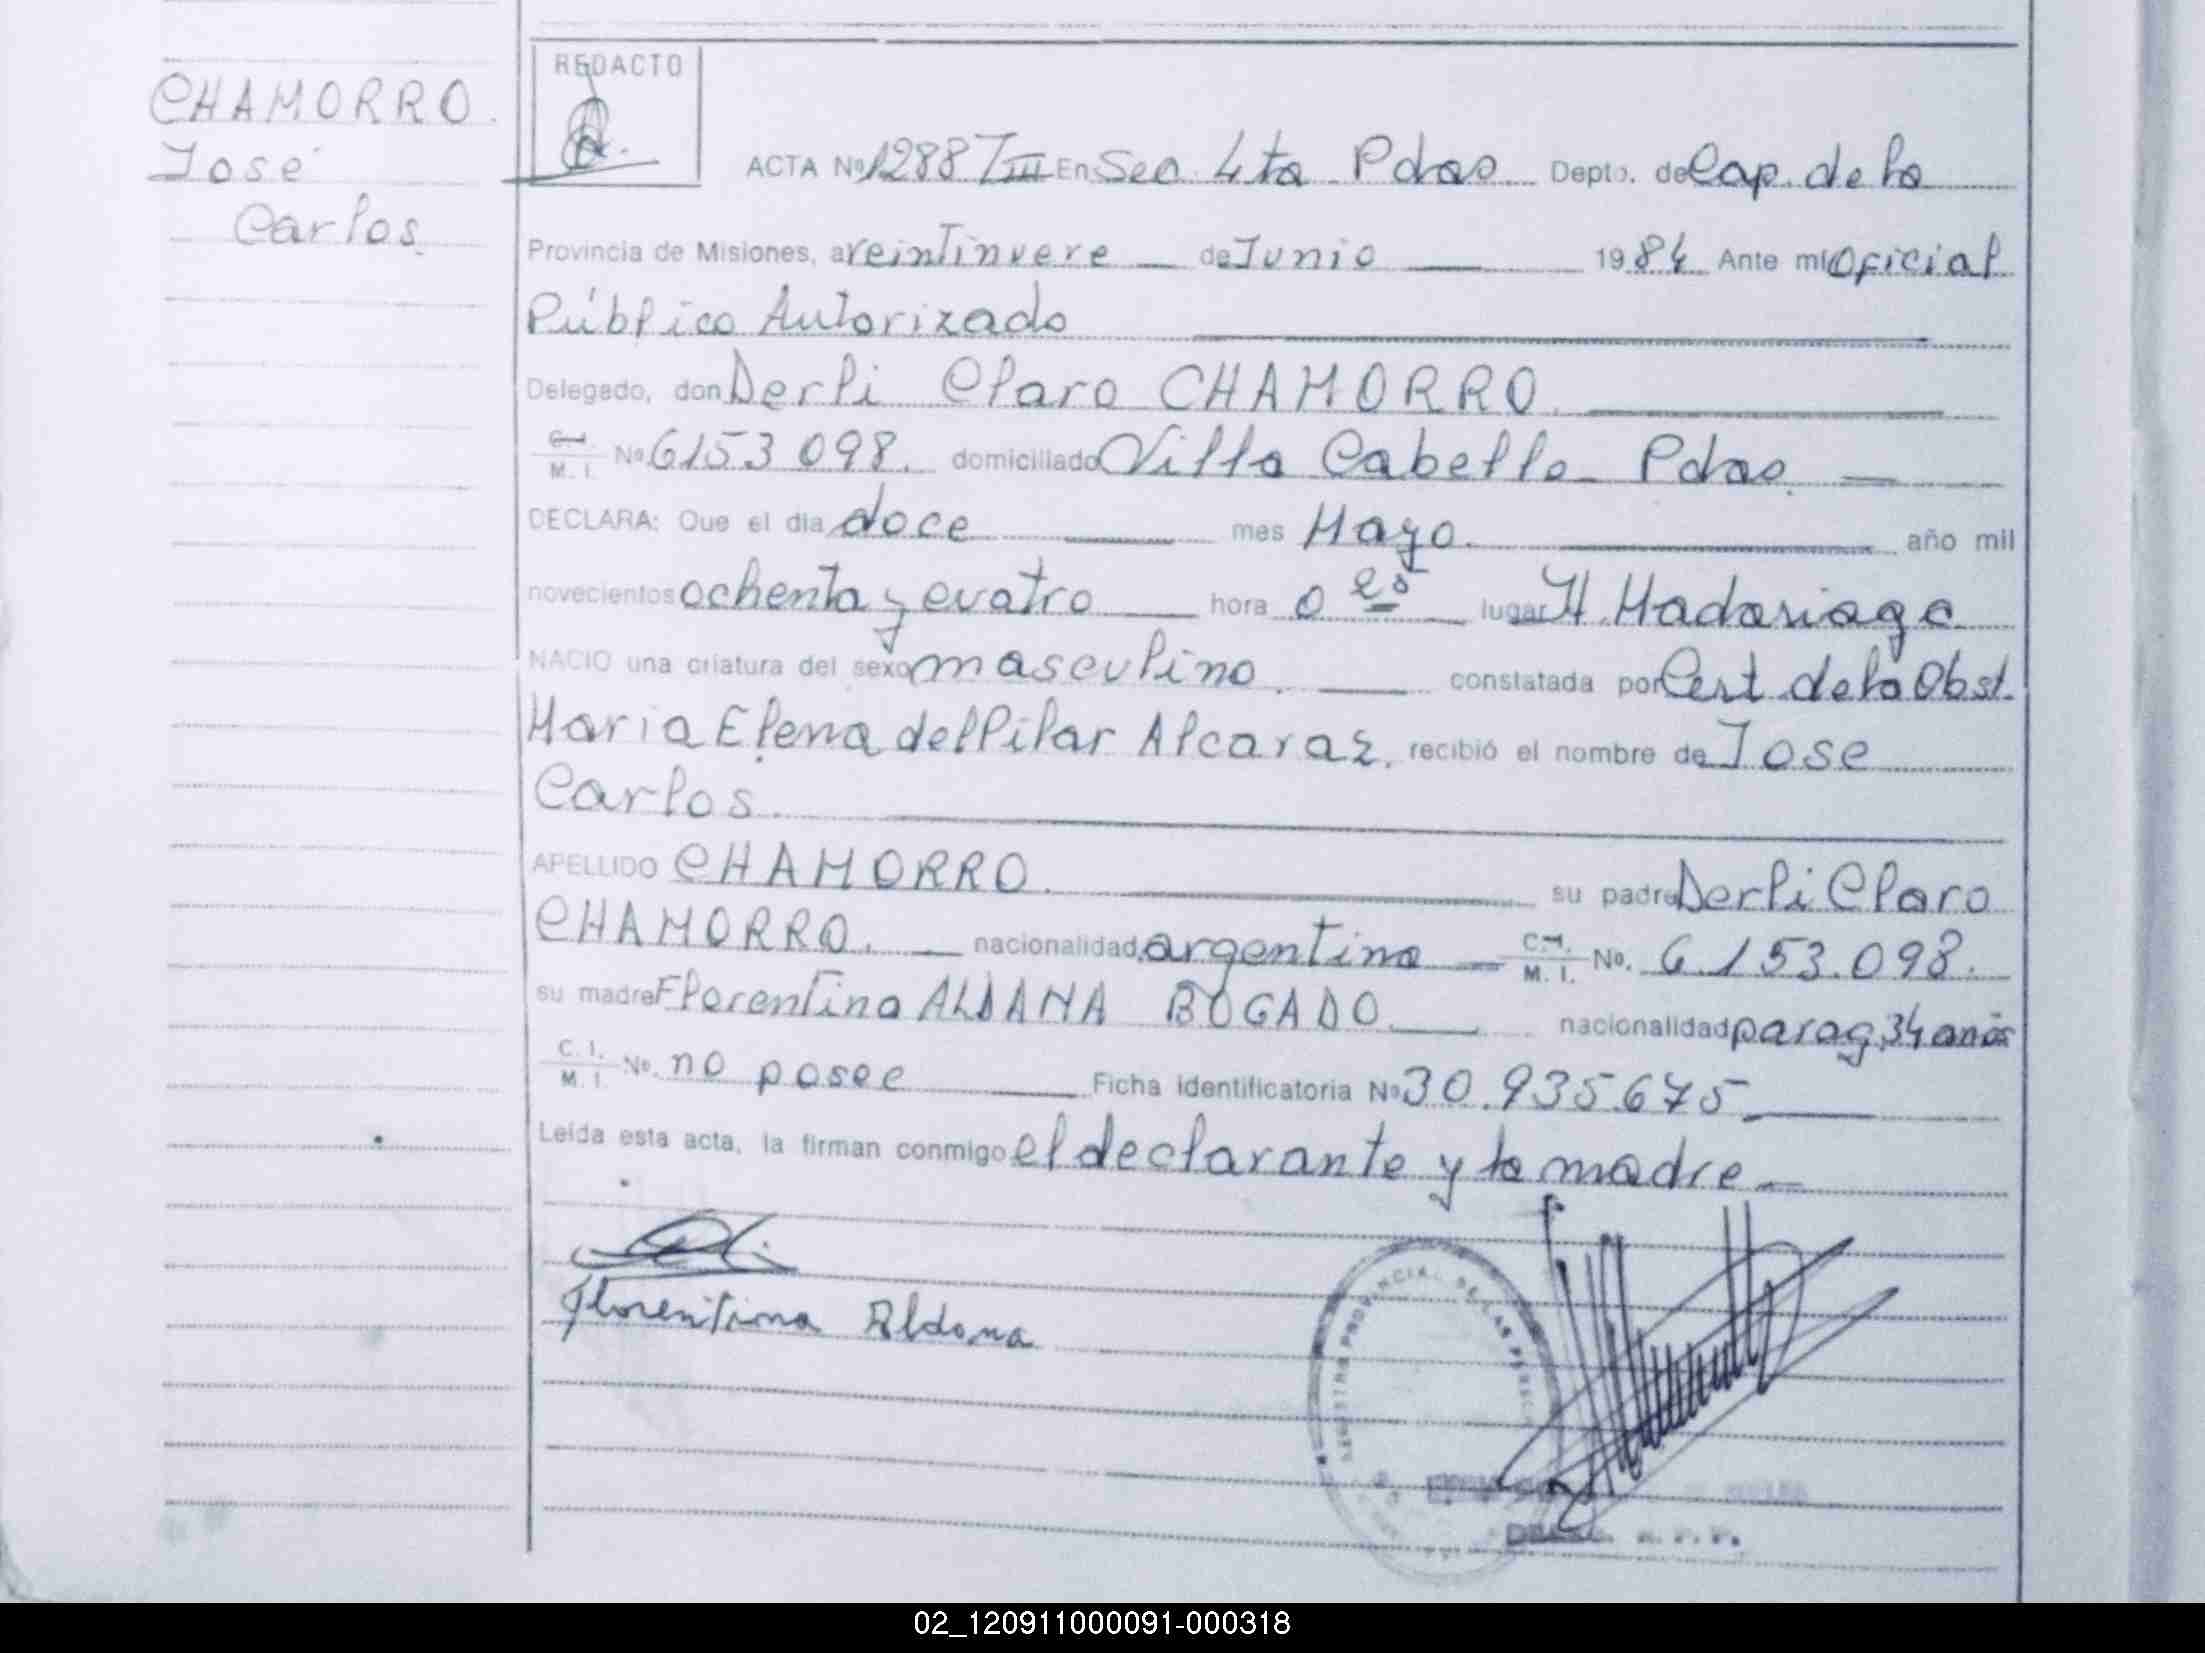 CHAMORRO.
José
Carlos
REDACTO
ACTA Nº 1288 TIII En Sec. 4ta Pdas Depto. de Cap. de la
Provincia de Misiones, a veintinueve de Junio 1984 Ante mi Oficial
Público Autorizado
Delegado, don Derli Claro CHAMORRO
C.I. M. I. Nº 6153 098. domiciliado Villa Cabello Pdas.
DECLARA: Que el dia doce mes Mayo. año mil
novecientos ochenta y cuatro hora 0 25 lugar H. Madariaga
NACIO una criatura del sexo masculino. constatada por Cert. de la Obst.
Maria Elena del Pilar Alcaraz. recibió el nombre de Jose
Carlos.
APELLIDO CHAMORRO. su padre Derli Claro
CHAMORRO. nacionalidad argentina C.I. M. I. No. 6.153.098.
su madre Florentina ALDANA BOGADO nacionalidad parag 34 años
C. I. M. I. No. no posee Ficha identificatoria Nº 30.935.675
Leída esta acta, la firman conmigo el declarante y la madre
Florentina Aldana
REGISTRO PROVINCIAL DE LAS PERSONAS
02_120911000091-000318